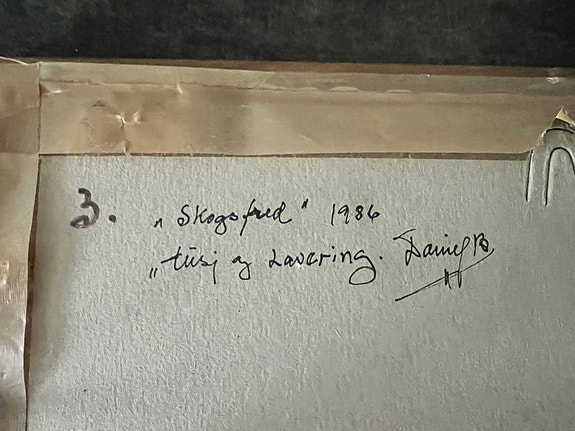 3. „Skogsfred" 1986
„tusj og Lavering. Daniel B